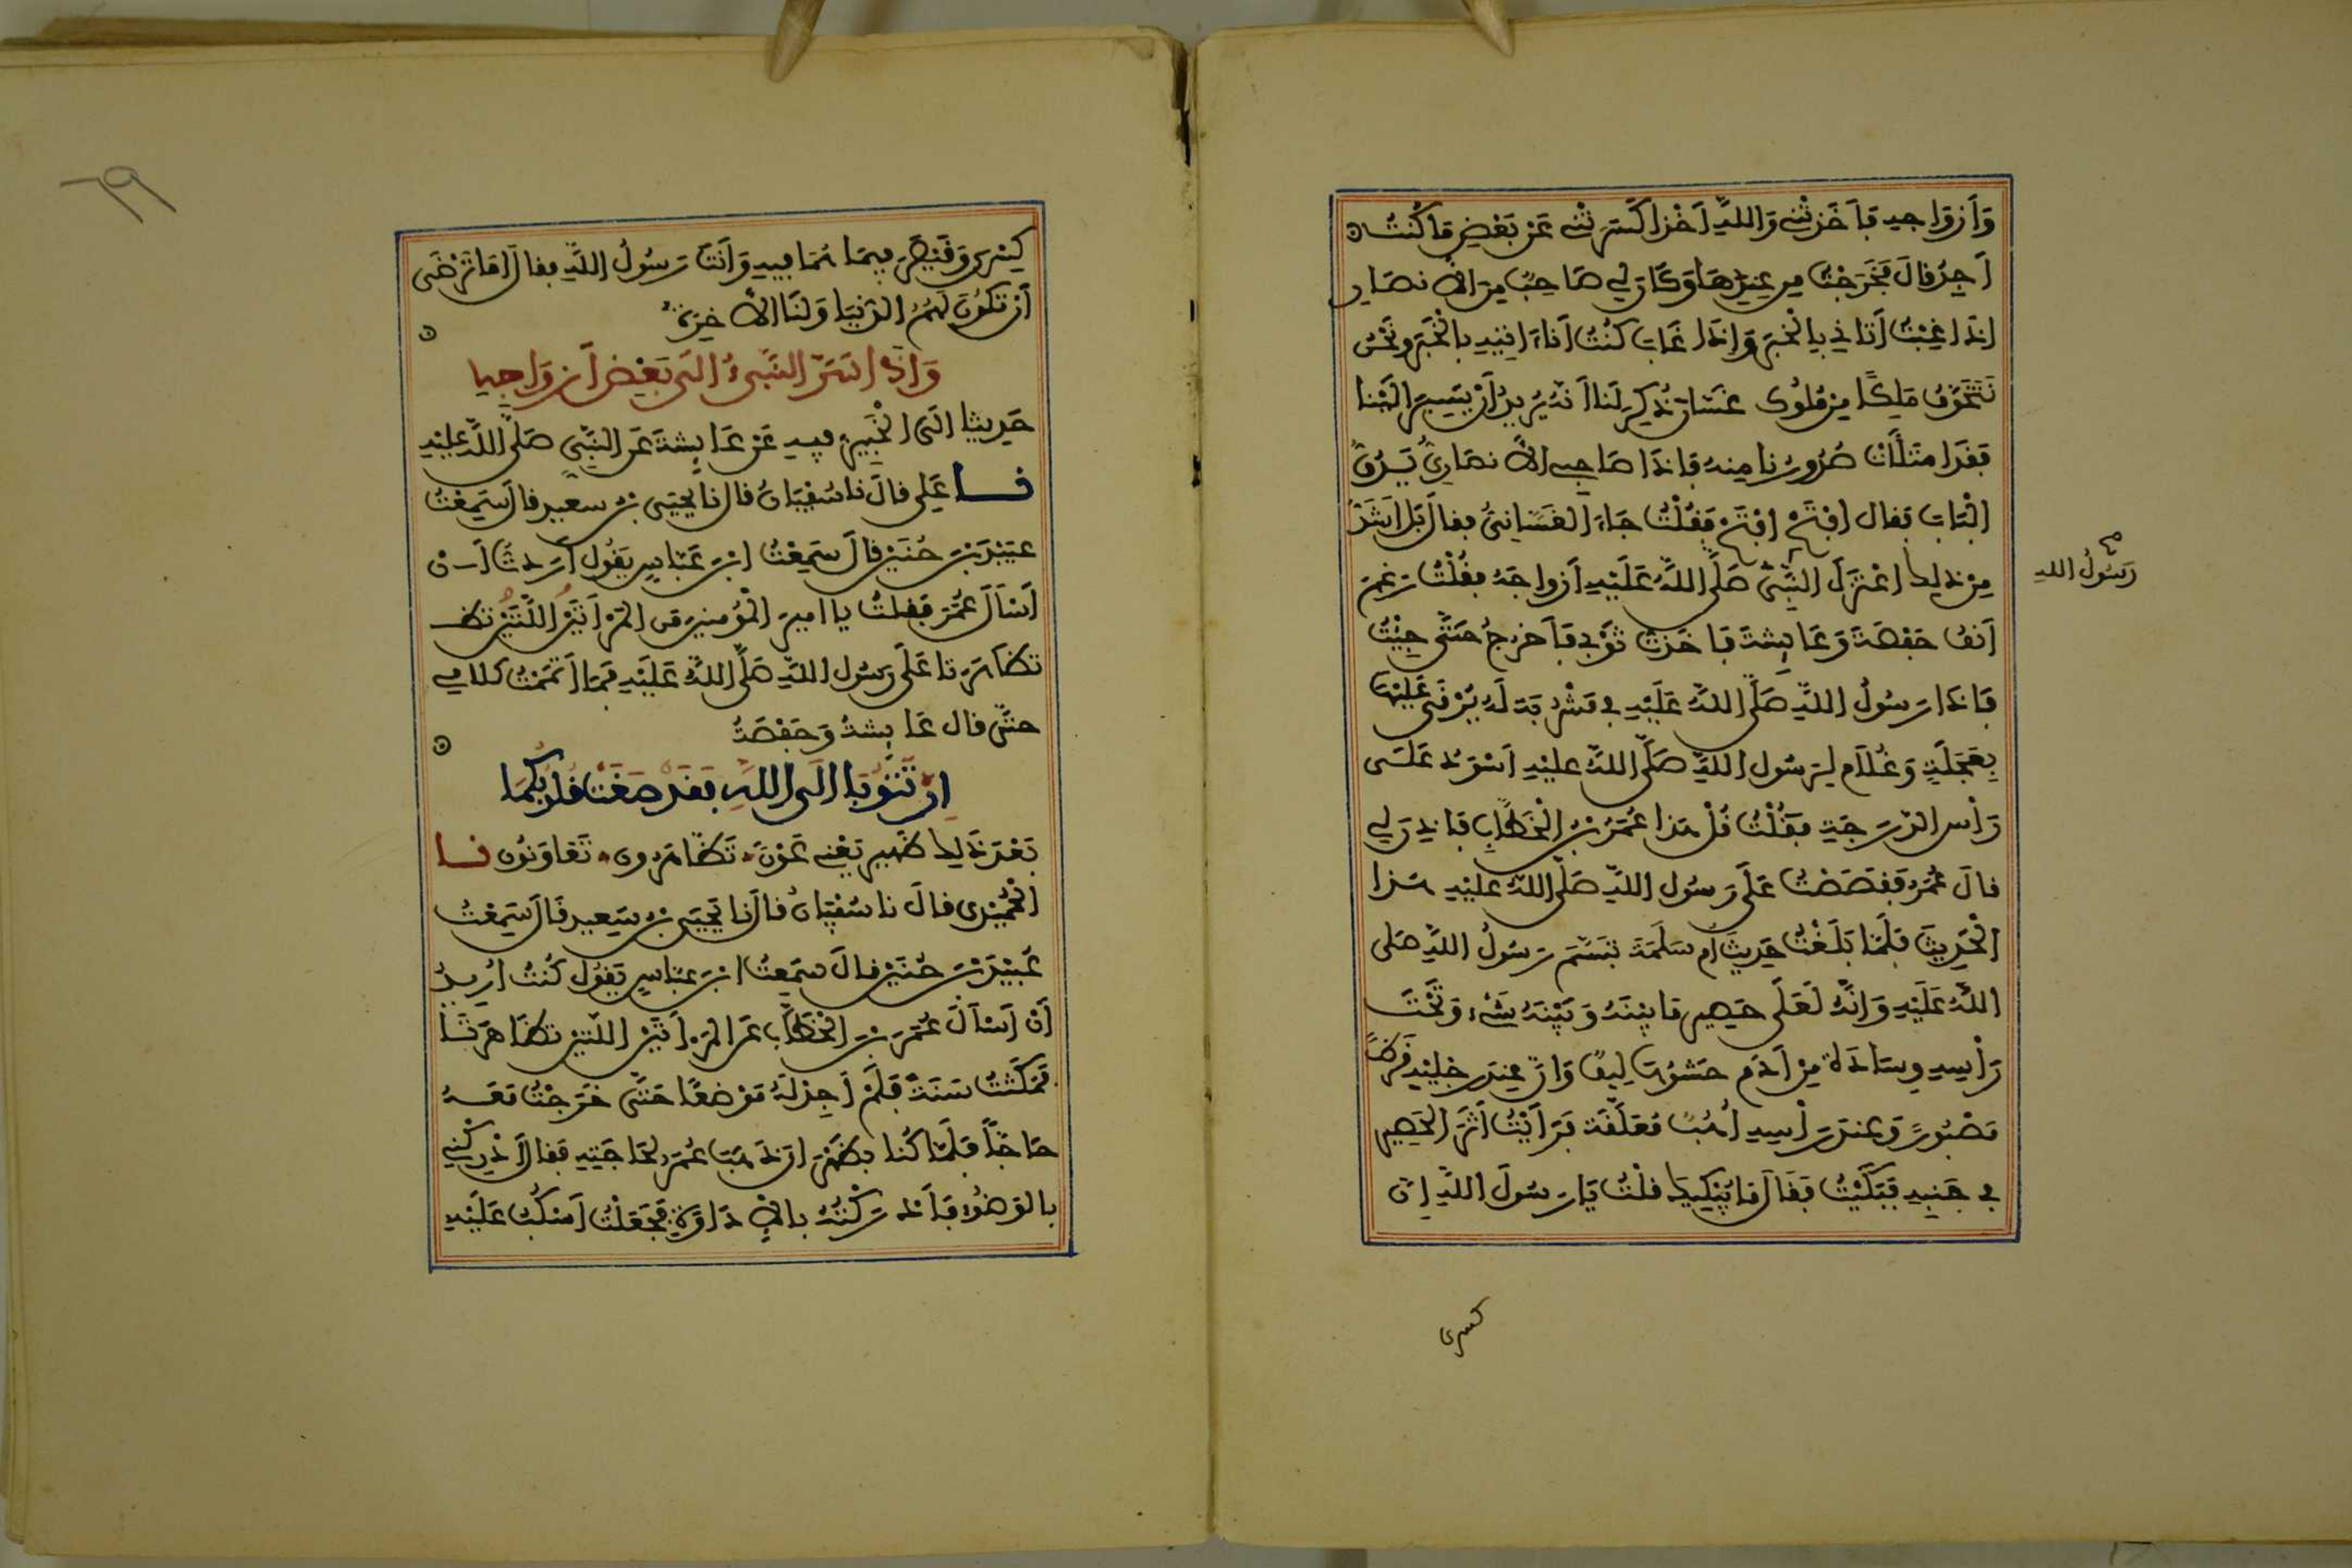 وَأَزْوَاجِهِ فَأَخَذَتْنِي وَاللَّهِ أَخْذًا كَسَرَتْنِي عَنْ بَعْضِ مَا كُنْتُ
أَجِدُ قَالَ فَخَرَجْتُ مِن عِنْدِهَا وَكَانَ لِي صَاحِبٌ مِنَ الْأَنْصَارِ
إِذَا غِبْتُ أَتَانِي بِالْخَبَرِ وَإِذَا غَابَ كُنْتُ أَنَا ءَاتِيهِ بِالْخَبَرِ وَنَحْنُ
نَتَخَوَّفُ مَلِكًا مِنْ مُلُوكِ غَسَّانَ ذُكِرَ لَنَا أَنَّهُ يُرِيدُ أَنْ يَسِيرَ إِلَيْنَا
فَقَدِ امْتَلَأَتْ صُدُورُنَا مِنْهُ فَإِذَا صَاحِبِي الْأَنْصَارِيُّ يَدُقُّ
الْبَابَ فَقَالَ افْتَحْ افْتَحْ فَقُلْتُ جَاءَ الْغَسَّانِيُّ فَقَالَ بَلْ أَشَدُّ
مِنْ ذَلِكَ اعْتَزَلَ النَّبِيُّ صَلَّى اللَّهُ عَلَيْهِ أَزْوَاجَهُ فَقُلْتُ رَغِمَ
رَسُولُ اللهِ
أَنْفُ حَفْصَةَ وَعَائِشَةَ فَأَخَذْتُ ثَوْبِي فَأَخْرُجُ حَتَّى جِئْتُ
فَإِذَا رَسُولُ اللَّهِ صَلَّى اللَّهُ عَلَيْهِ فِي مَشْرُبَةٍ لَهُ يَرْقَى عَلَيْهَا
بِعَجَلَةٍ وَغُلَامٌ لِرَسُولِ اللَّهِ صَلَّى اللَّهُ عَلَيْهِ أَسْوَدُ عَلَى
رَأْسِ الدَّرَجَةِ فَقُلْتُ قُلْ هَذَا عُمَرُ بْنُ الْخَطَّابِ فَأَذِنَ لِي
قَالَ عُمَرُ فَقَصَصْتُ عَلَى رَسُولِ اللَّهِ صَلَّى اللَّهُ عَلَيْهِ هَذَا
الْحَدِيثَ فَلَمَّا بَلَغْتُ حَدِيثَ أُمِّ سَلَمَةَ تَبَسَّمَ رَسُولُ اللَّهِ صَلَّى
اللَّهُ عَلَيْهِ وَإِنَّهُ لَعَلَى حَصِيرٍ مَا بَيْنَهُ وَبَيْنَهُ شَيْءٌ وَتَحْتَ
رَأْسِهِ وِسَادَةٌ مِنْ أَدَمٍ حَشْوُهَا لِيفٌ وَإِنَّ عِنْدَ رِجْلَيْهِ قَرَظًا
مَصْبُورًا وَعِنْدَ رَأْسِهِ أُهُبٌ مُعَلَّقَةٌ فَرَأَيْتُ أَثَرَ الْحَصِيرِ
فِي جَنْبِهِ فَبَكَيْتُ فَقَالَ مَا يُبْكِيكَ قُلْتُ يَا رَسُولَ اللَّهِ إِنَّ
كسرى
٦٩
كِسْرَى وَقَيْصَرَ فِيمَا هُمَا فِيهِ وَأَنْتَ رَسُولُ اللَّهِ فَقَالَ أَمَا تَرْضَى
أَنْ تَكُونَ لَهُمُ الدُّنْيَا وَلَنَا الْآخِرَةُ
وَإِذْ أَسَرَّ النَّبِيءُ إِلَى بَعْضِ أَزْوَاجِهِ
حَدِيثًا إِلَى الْخَبِيرُ فِيهِ عَنْ عَائِشَةَ عَنِ النَّبِيِّ صَلَّى اللَّهُ عَلَيْهِ
نا عَلِي قَالَ نا سُفْيَانُ قَالَ نا يَحْيَى بْنُ سَعِيدٍ قَالَ سَمِعْتُ
عُبَيْدَ بْنَ حُنَيْنٍ قَالَ سَمِعْتُ ابْنَ عَبَّاسٍ يَقُولُ أَرَدْتُ أَنْ
أَسْأَلَ عُمَرَ فَقُلْتُ يَا أَمِيرَ الْمُؤْمِنِينَ مَنِ الْمَرْأَتَيْنِ اللَّتَيْنِ تظـ
تَظَاهَرَتَا عَلَى رَسُولِ اللَّهِ صَلَّى اللَّهُ عَلَيْهِ فَمَا أَتْمَمْتُ كَلَامِي
حَتَّى قَالَ عَائِشَةُ وَحَفْصَةُ
إِنْ تَتُوبَا إِلَى اللَّهِ فَقَدْ صَغَتْ قُلُوبُكُمَا
بَعْدَ ذَلِكَ ظَهِيرٌ يَعْنِي عَوْنٌ تَظَاهَرُونَ تَعَاوَنُونَ نا
الْحُمَيْدِي قَالَ نا سُفْيَانُ قَالَ نا يَحْيَى بْنُ سَعِيدٍ قَالَ سَمِعْتُ
عُبَيْدَ بْنَ حُنَيْنٍ قَالَ سَمِعْتُ ابْنَ عَبَّاسٍ يَقُولُ كُنْتُ أُرِيدُ
أَنْ أَسْأَلَ عُمَرَ بْنَ الْخَطَّابِ عَنِ الْمَرْأَتَيْنِ اللَّتَيْنِ تَظَاهَرَتَا
فَمَكَثْتُ سَنَةً فَلَمْ أَجِدْ لَهُ مَوْضِعًا حَتَّى خَرَجْتُ مَعَهُ
حَاجًّا فَلَمَّا كُنَّا بِظَهْرَانَ ذَهَبَ عُمَرُ لِحَاجَتِهِ فَقَالَ أَدْرِكْنِي
بِالْوَضُوءِ فَأَدْرَكْتُهُ بِالْإِدَاوَةِ فَجَعَلْتُ أَسْكُبُ عَلَيْهِ